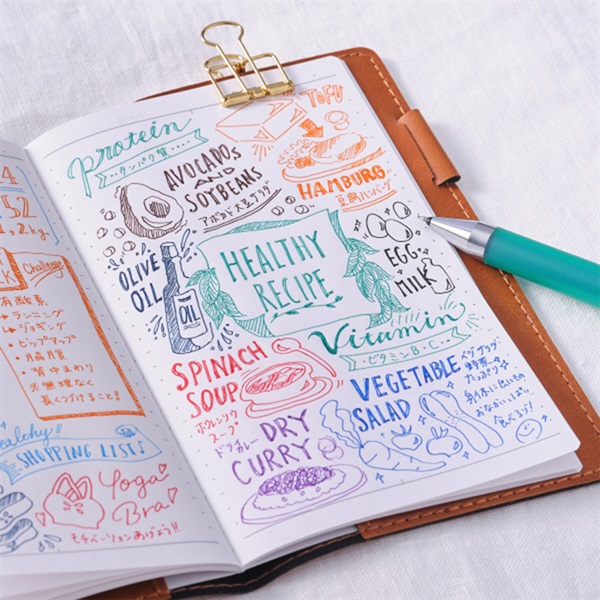 4
52
1.2kg
Challenge
有酸素
ランニング
ジョギング
ヒップアップ
背中まわり
無理なく
長くつづけること!
Healthy!!
SHOPPING LIST♪
Yoga
Bra
モチベーションあげよう!!
Protein
タンパク質
AVOCADOS
AND
SOYBEANS
アボカド大豆サラダ
TOFU
HAMBURG
豆腐ハンバーグ
OLIVE
OIL
OIL
HEALTHY
RECIPE
EGG
MILK
Vitamin
ビタミンB・C
SPINACH
SOUP
ホウレンソウ
スープ
ドライカレー
DRY
CURRY
VEGETABLE
SALAD
野菜
たっぷり
食べよう!